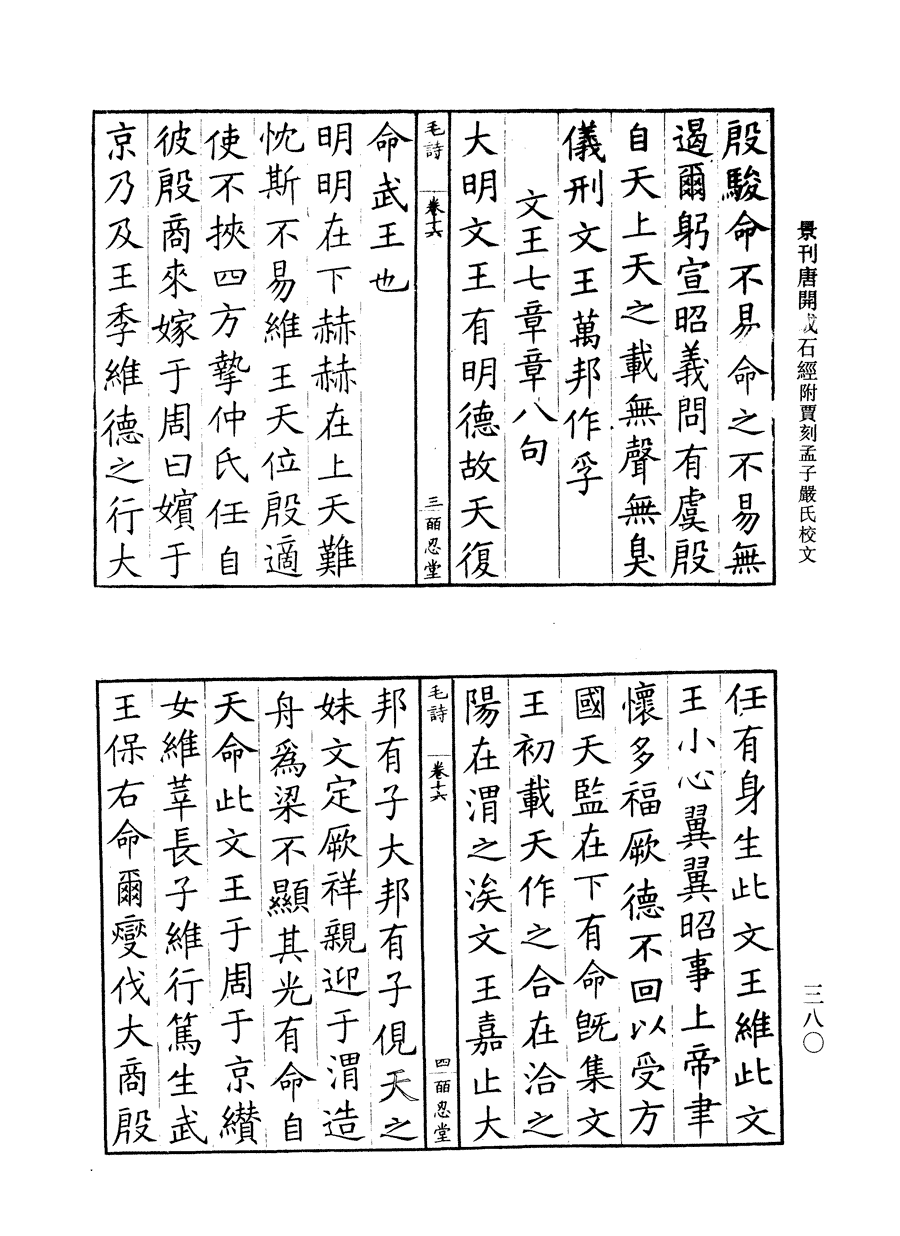 景刊唐開成石經附賈刻孟子嚴氏校文
殷駿命不易命之不易無
遏爾躬宣昭義問有虞殷
自天上天之載無聲無臭
儀刑文王萬邦作孚
文王七章章八句
大明文王有明德故天復
毛詩 卷十六 三 皕忍堂
命武王也
明明在下赫赫在上天難
忱斯不易維王天位殷適
使不挾四方摯仲氏任自
彼殷商來嫁于周曰嬪于
京乃及王季維德之行大
任有身生此文王維此文
王小心翼翼昭事上帝聿
懷多福厥德不回以受方
國天監在下有命旣集文
王初載天作之合在洽之
陽在渭之涘文王嘉止大
毛詩 卷十六 四 皕忍堂
邦有子大邦有子俔天之
妹文定厥祥親迎于渭造
舟爲梁不顯其光有命自
天命此文王于周于京纘
女維莘長子維行篤生武
王保右命爾燮伐大商殷
三八〇